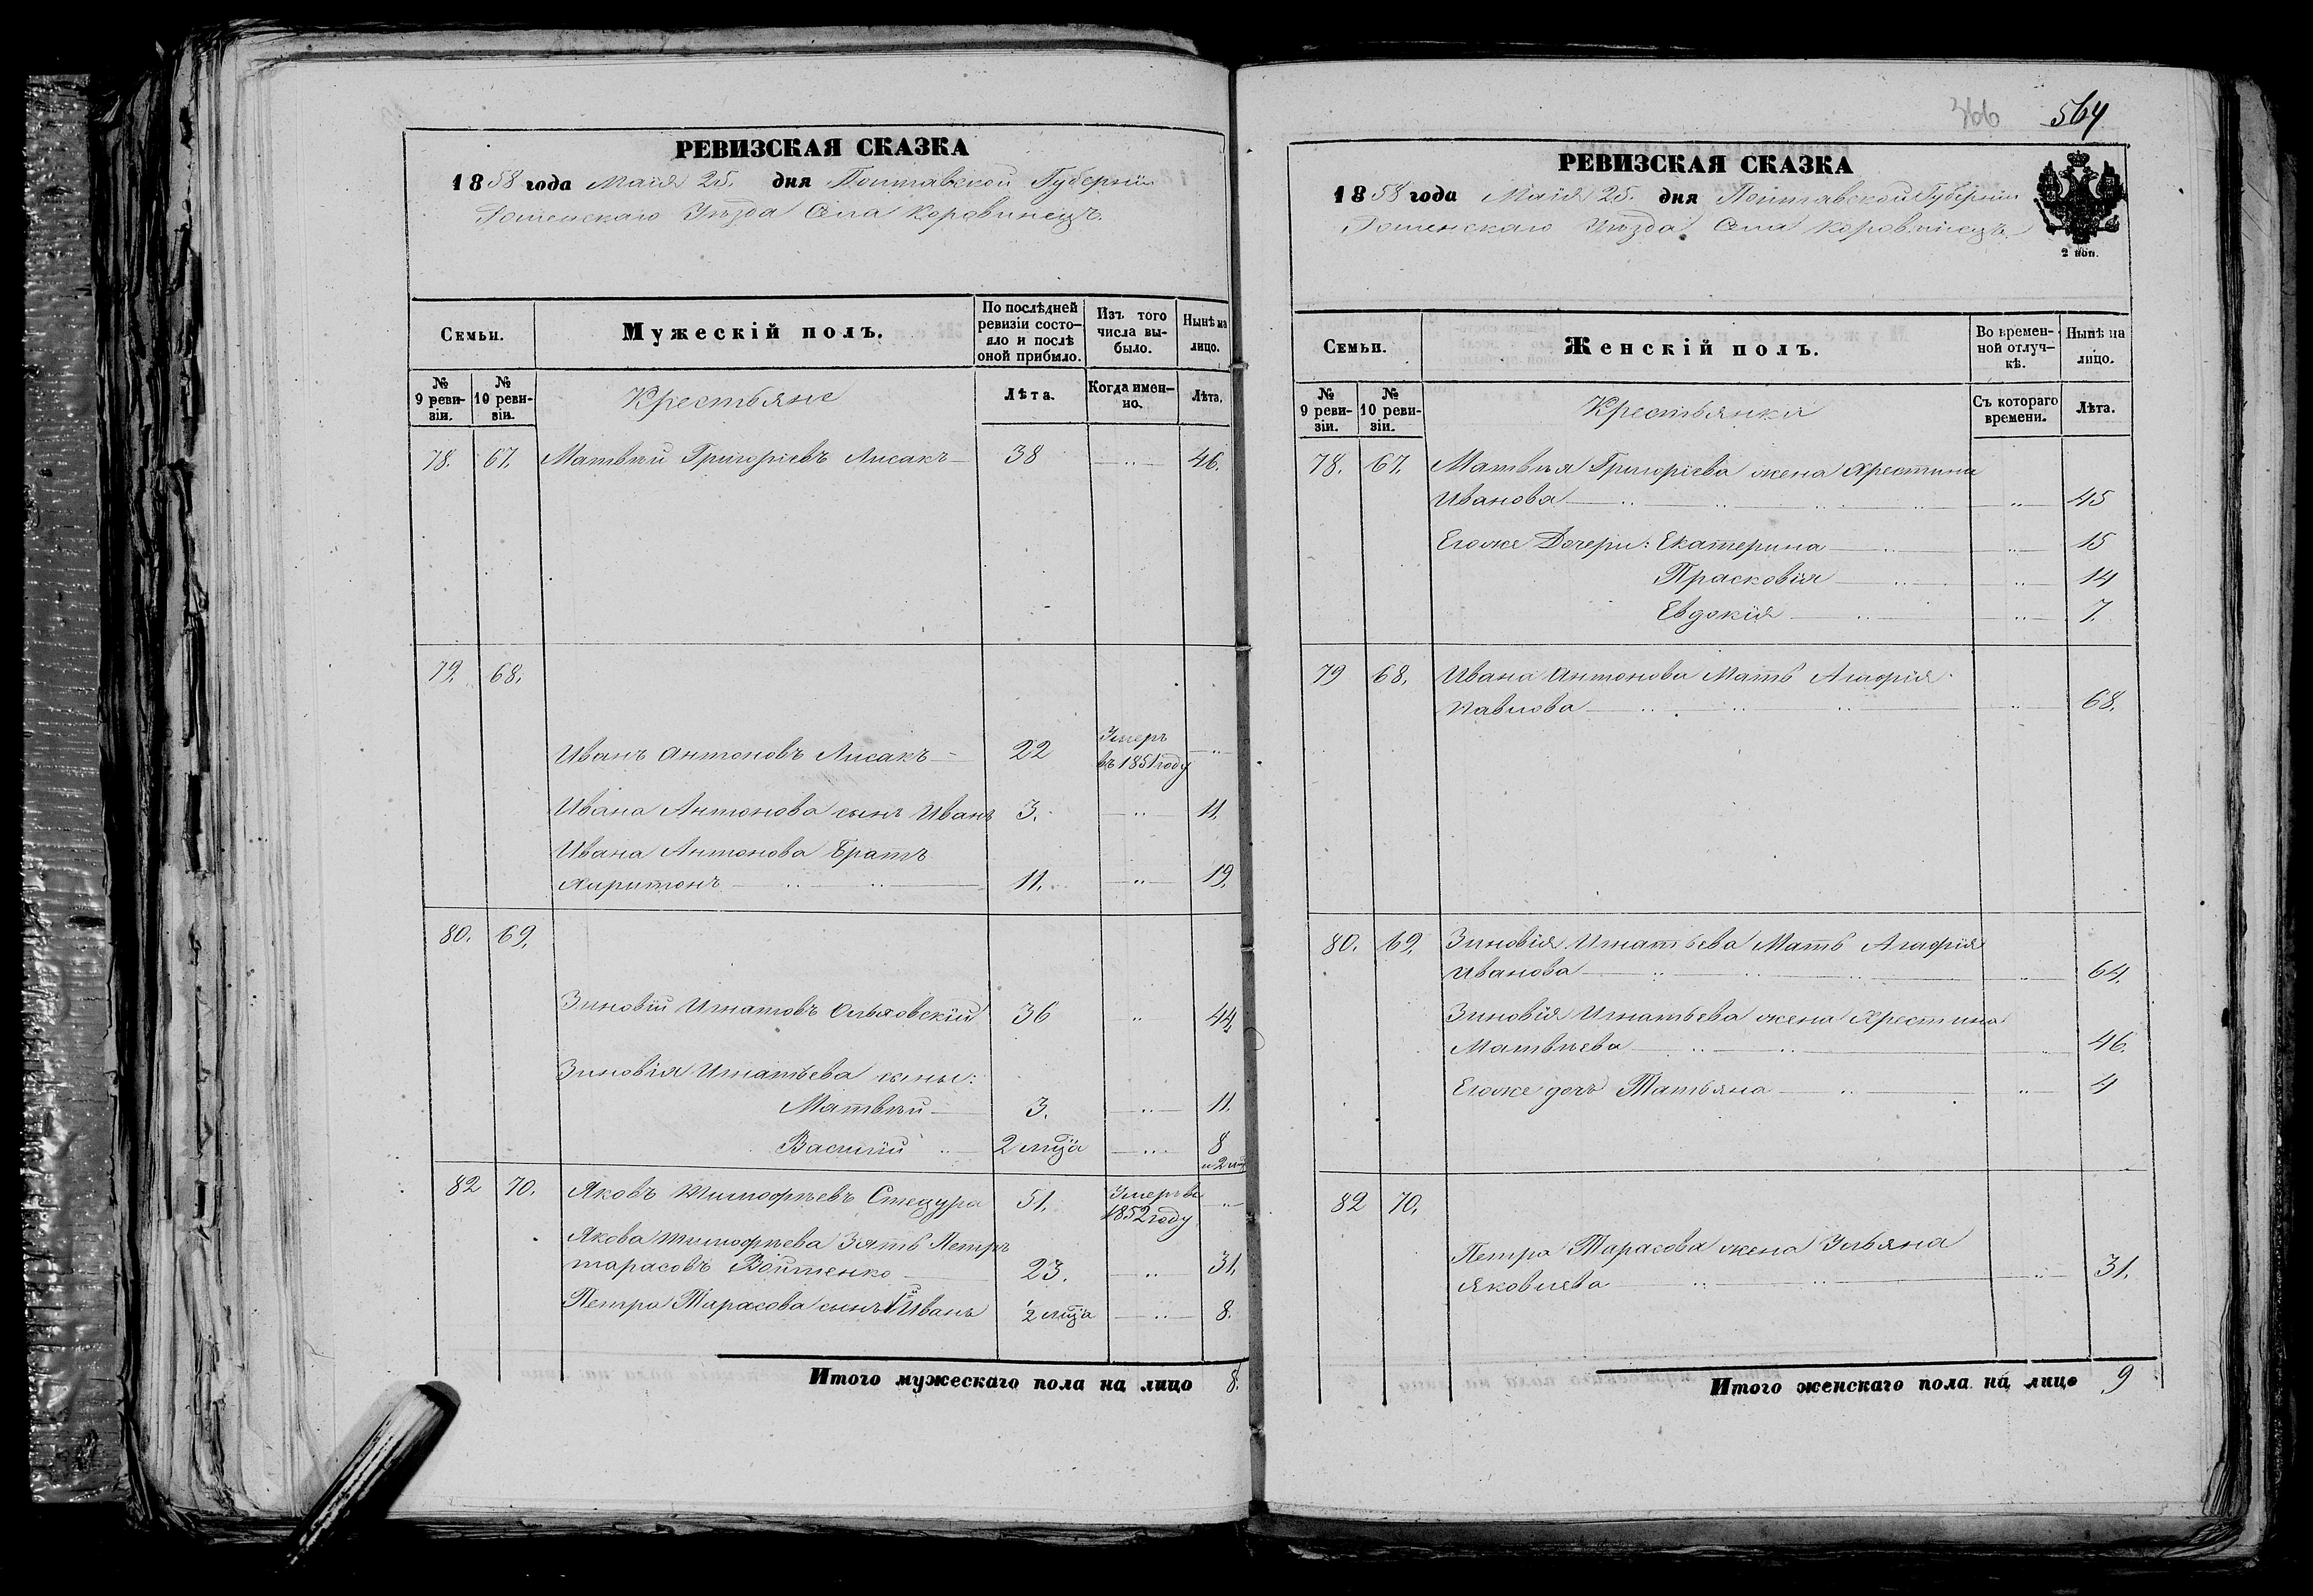 РЕВИЗСКАЯ СКАЗКА
1858 года Маія 25. дня Полтавской Губерніи
Роменскаго Уѣзда Села Коровинецъ.
Семьи.
Мужескій полъ.
По послѣдней ревизіи состояло и послѣ оной прибыло.
Изъ того числа выбыло.
Нынѣ на лицо.
№ 9 ревизіи.
№ 10 ревизіи.
Крестьяне
Лѣта.
Когда именно.
Лѣта.
78. 67. Матвѣй Григоріевъ Лисакъ 38 — " — 46.
79. 68.
Иванъ Антоновъ Лисакъ 22 Умеръ въ 1851 году — " —
Ивана Антонова сынъ Иванъ 3. — " — 11.
Ивана Антонова Братъ
Харитонъ 11. — " — 19.
80. 69.
Зиновій Игнатовъ Ольховскій 36 " 44.
Зиновія Игнатьева сыны:
Матвѣй 3. — " — 11.
Василій 2 мца — " — 8 и 2 м
82 70. Яковъ Тимофѣевъ Стецура 51. Умеръ въ 1852 году — " —
Якова Тимофѣева Зять Петръ
Тарасовъ Войтенко 23. — " — 31.
Петра Тарасова сынъ Иванъ 2 мца — " — 8.
Итого мужескаго пола на лицо 8.
366 564
РЕВИЗСКАЯ СКАЗКА
1858 года Маія 25. дня Полтавской Губерніи
Роменскаго Уѣзда Села Коровинецъ.
2 коп.
Семьи.
Женскій полъ.
Во временной отлучкѣ.
Нынѣ на лицо.
№ 9 ревизіи.
№ 10 ревизіи.
Крестьянки
Съ котораго времени.
Лѣта.
78. 67. Матвѣя Григоріева жена Христина
Иванова — " — 45
Егоже Дочери: Екатерина — " — 15
Прасковія — " — 14
Евдокія — " — 7.
79 68. Ивана Антонова Мать Агафія
Павлова — " — 68.
80. 69. Зиновія Игнатьева Мать Агафія
Иванова — " — 64.
Зиновія Игнатьева жена Христина
Матвѣева — " — 46.
Егоже дочь Татьяна — " — 4
82 70.
Петра Тарасова жена Ульяна
Яковлева — " — 31.
Итого женскаго пола на лицо 9